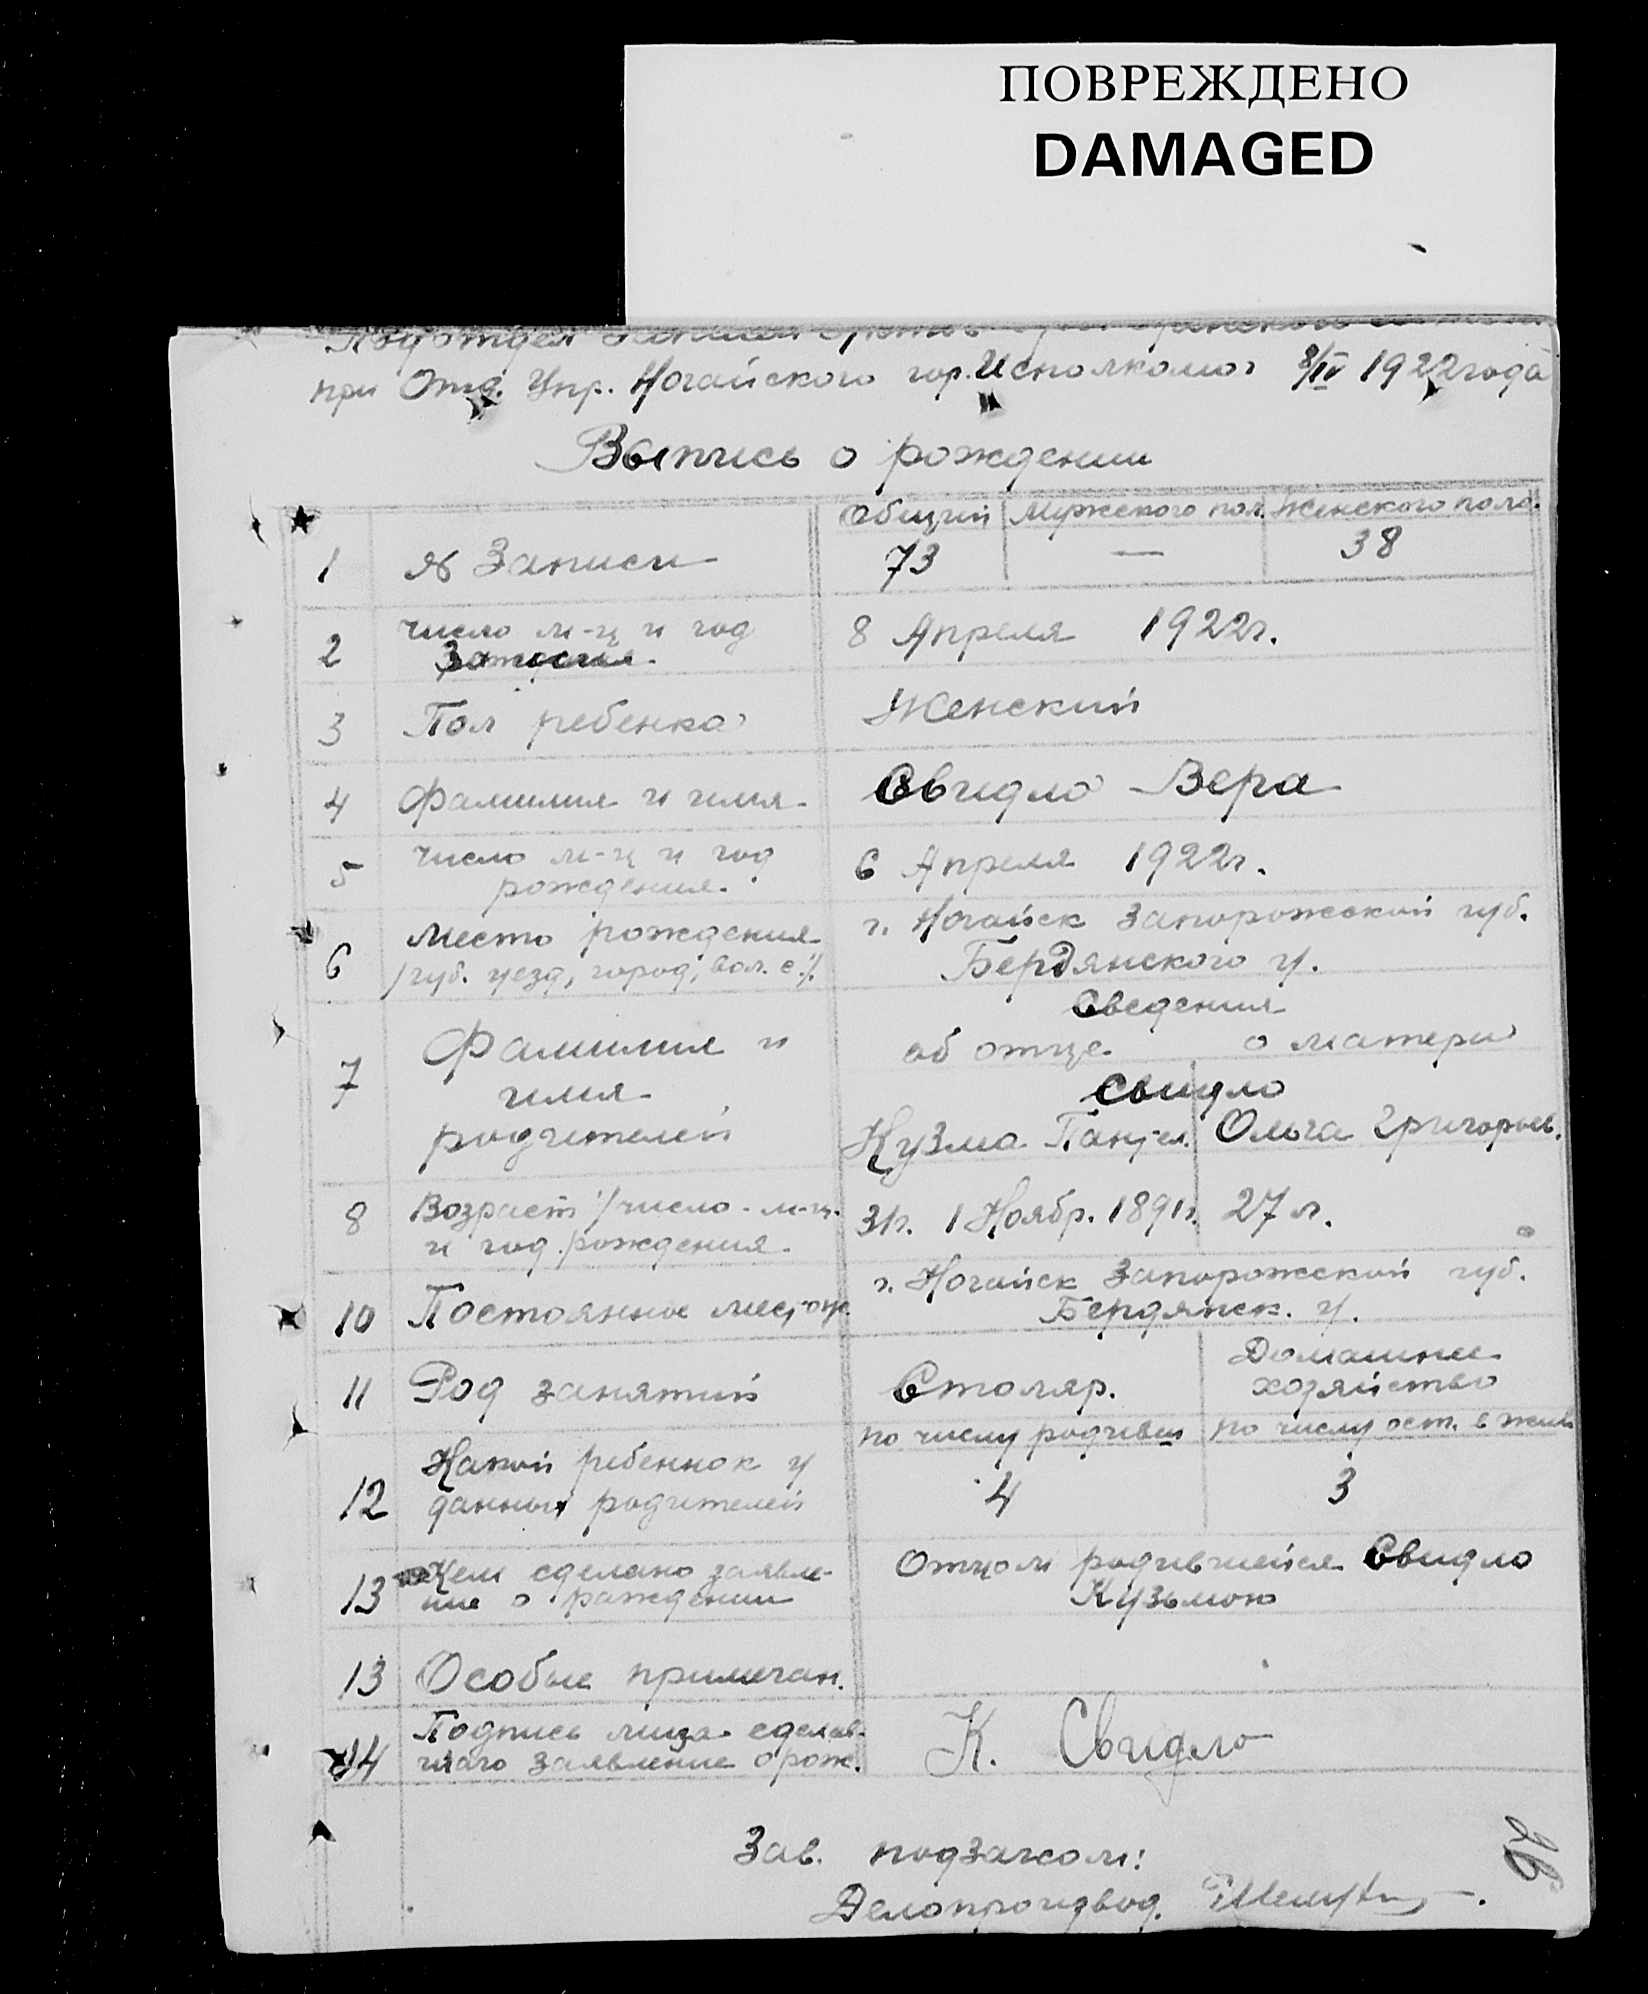 ПОВРЕЖДЕНО
DAMAGED
Подотдел Записи Актов
при Отд. Упр. Ногайского гор. Исполкома 8/IV 1922 года
Выпись о рождении
Общий Мужского пол. Женского пола.
1 № Записи 73 — 38
2 Число м-ц и год 8 Апреля 1922г.
3 Пол ребенка Женский
4 Фамилия и имя Свидло Вера
5 Число м-ц и год 6 Апреля 1922г.
рождения.
6 Место рождения г. Ногайск Запорожской губ.
/губ. уезд, город, вол. с./. Бердянского у.
Сведения
7 Фамилия и об отце о матери
имя Свидло
родителей Кузма Пантел. Ольга Григорьев.
8 Возраст /число - м-ц. 31г. 1 Ноябр. 1891г. 27 л.
и год рождения.
г. Ногайск Запорожской губ.
10 Постоянное Бердянск. у.
11 Род занятий Столяр. Домашнее
хозяйство
по числу родивш по числу ост. в жив
12 Какой ребеннок у 4 3
данных родителей
13 Кем сделано заявле- Отцом родившейся Свидло
ние о рождении Кузьмою
13 Особые примечан.
14 Подпись лица сделав- К. Свидло
шаго заявление о рож.
Зав. подзагсом:
Делопроизвод.